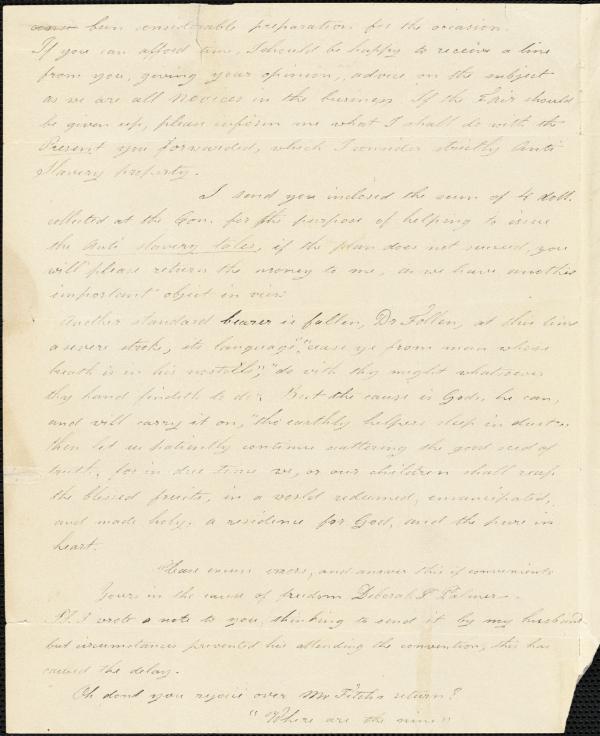 been considerable preparation for the occasion.
If you can afford time, I should be happy to receive a line
from you, giving your opinion, advice on the subject
as we are all Novices in the business. If the Fair should
be given up, please inform me what I shall do with the
Present you forwarded, which I consider strictly Anti
Slavery property.
I send you inclosed the sum of 4 doll.
collected at the Con. for the purpose of helping to issue
the Anti slavery tales, if the plan does not succeed, you
will please return the money to me, as we have another
important object in view
Another standard bearer is fallen, Dr Follen, at this time
a severe stroke, its language, "cease ye from man whose
breath is in his nostrils", "do with thy might whatsoever
thy hand findeth to do". But the cause is Gods, he can,
and will carry it on, "tho earthly helpers sleep in dust"
then let us patiently continue scattering the good seed of
truth, for in due time we, or our children shall reap
the blessed fruits, in a world redeemed, emancipated,
and made holy, a residence for God, and the pure in
heart.
Please excuse errors, and answer this if convenient
Yours in the cause of freedom Deborah Palmer.
I wrote a note to you, thinking to send it by my husband
but circumstances prevented his attending the convention, this has
caused the delay.
Oh dont you rejoice over Mr Fitchs return?
"Where are the nine"